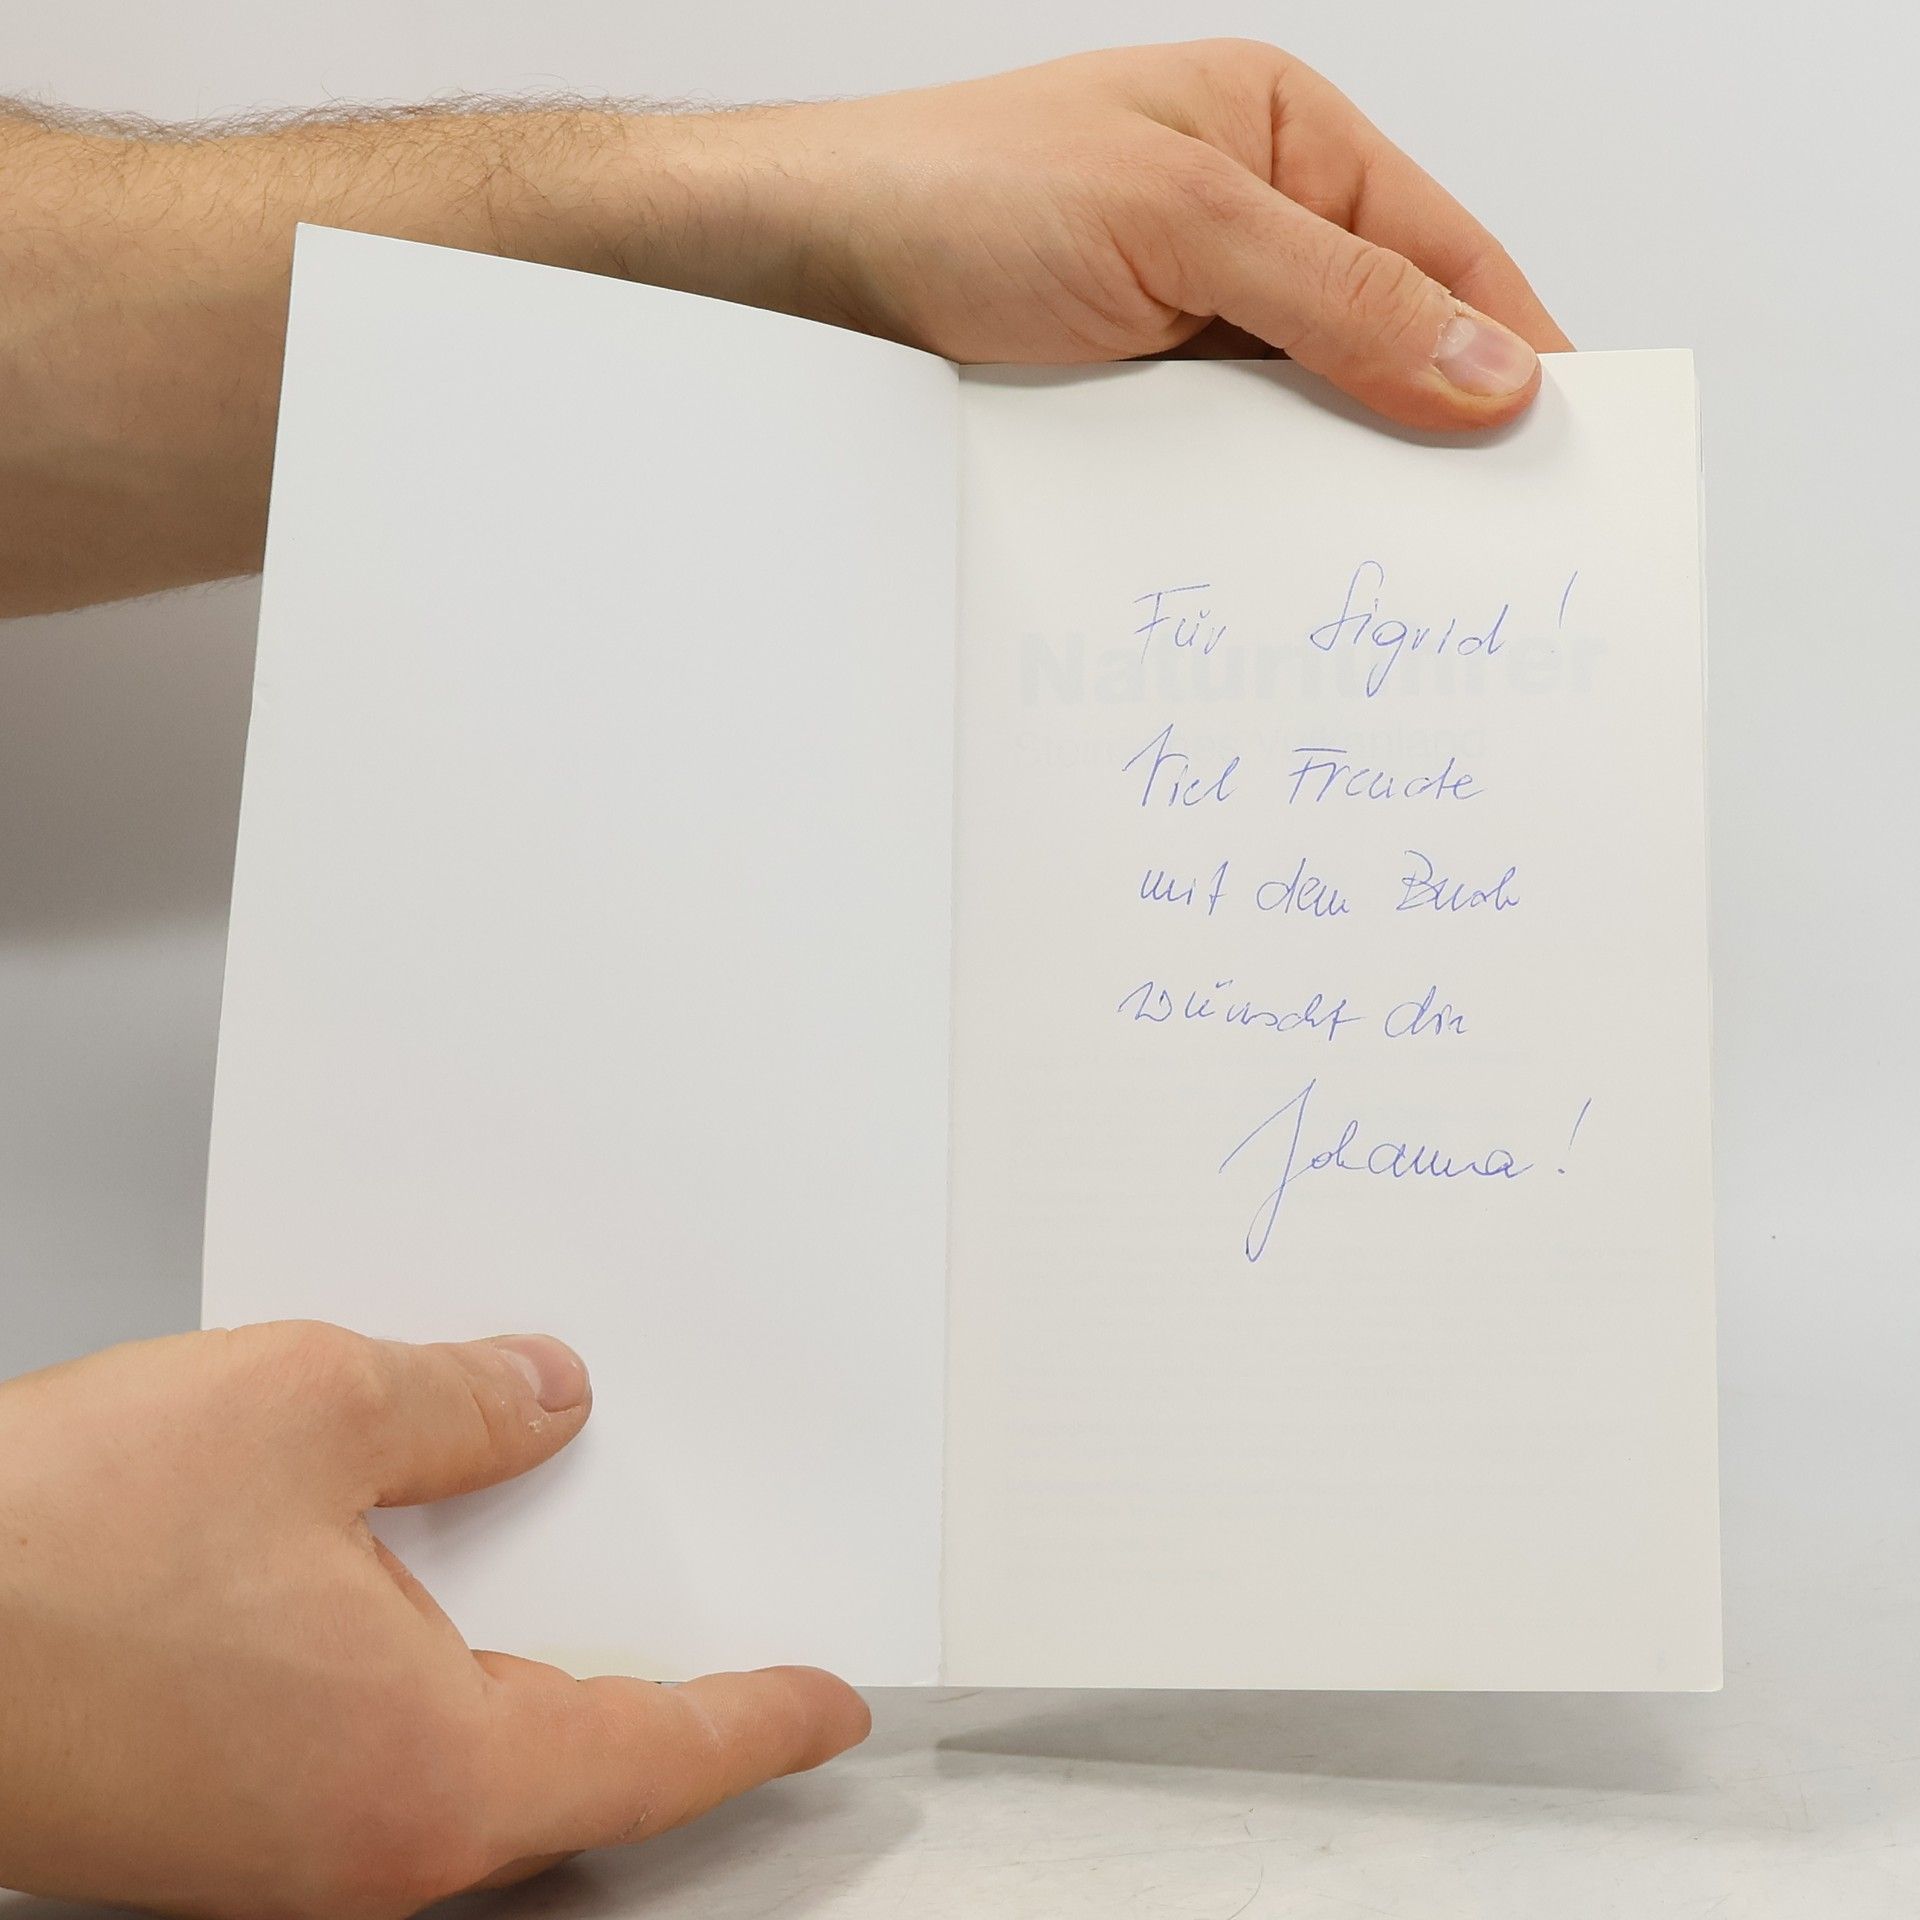 Für Sigrid!
Naturführer
Viel Freude
mit dem Buch
wünscht dir
Johanna!